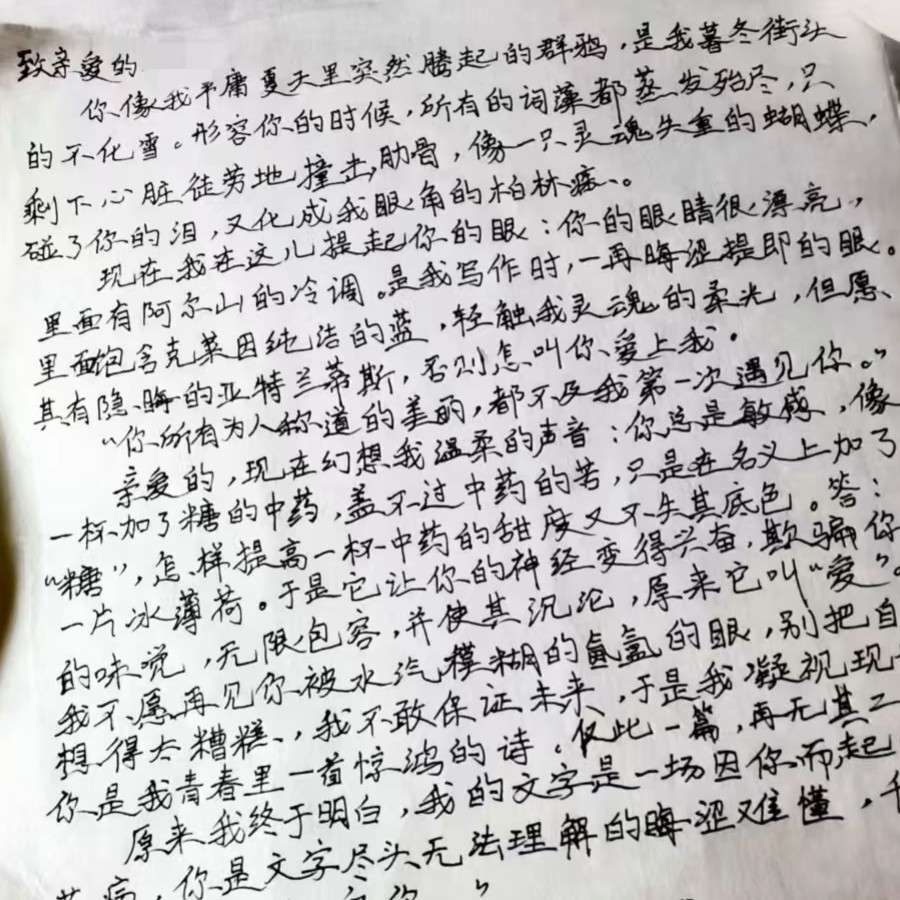 致亲爱的
你像我平庸夏天里突然腾起的群鸦，是我暮冬街头
的不化雪。形容你的时候，所有的词藻都蒸发殆尽，只
剩下心脏徒劳地撞击肋骨，像一只灵魂失重的蝴蝶，
碰了你的泪，又化成我眼角的柏林墙。
现在我在这儿提起你的眼：你的眼睛很漂亮，
里面有阿尔山的冷调。是我写作时，一再晦涩提即的眼。
里面饱含克莱因纯洁的蓝，轻触我灵魂的柔光，但愿
其有隐晦的亚特兰蒂斯，否则怎叫你爱上我。
“你所有为人称道的美丽，都不及我第一次遇见你。”
亲爱的，现在幻想我温柔的声音：你总是敏感，像
一杯加了糖的中药，盖不过中药的苦，只是在名义上加了
“糖”，怎样提高一杯中药的甜度又不失其底色。答：
一片冰薄荷。于是它让你的神经变得兴奋，欺骗你
的味觉，无限包容，并使其沉沦，原来它叫“爱”。
我不愿再见你被水汽模糊的氤氲的眼，别把自
想得太糟糕，我不敢保证未来，于是我凝视现
你是我青春里一首惊鸿的诗。仅此一篇，再无其二
原来我终于明白，我的文字是一场因你而起
病，你是文字尽头无法理解的晦涩难懂，
你。”